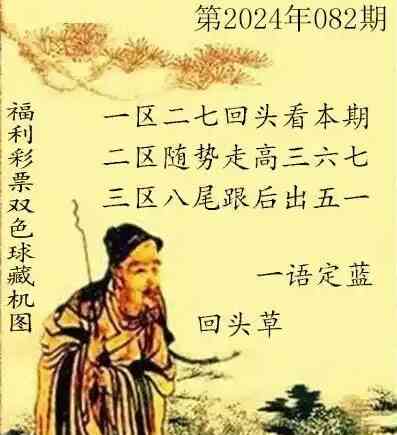 第2024年082期
福利彩票双色球藏机图
一区二七回头看本期
二区随势走高三六七
三区八尾跟后出五一
一语定蓝
回头草